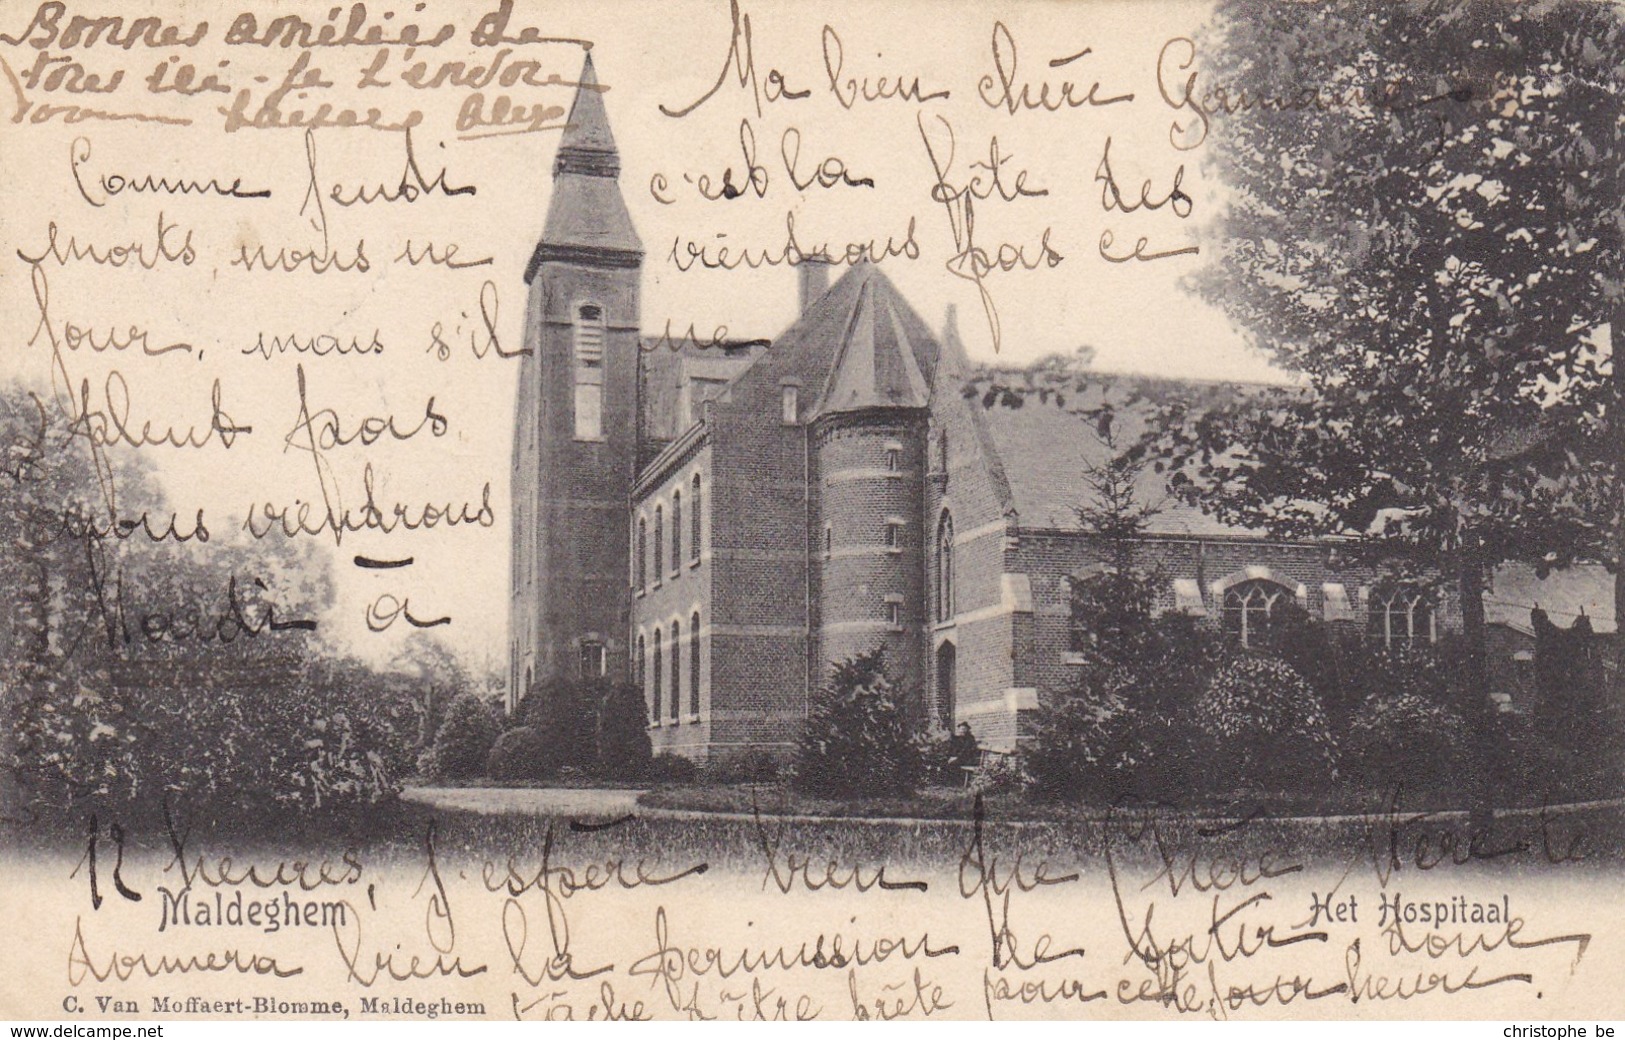 Bonnes amitiés de
tous ici - je t'envoie
bons baisers Alex
Ma bien chère Germaine
Comme jeudi c'est la fête des
morts, nous ne viendrons pas ce
jour, mais s'il ne
pleut pas
nous viendrons
Mardi à
12 heures, j'espère bien que Chère
Maldeghem Het Hospitaal
donnera bien la permission de sortir, donc
tâche d'être prête pour cette heure.
C. Van Moffaert-Blomme, Maldeghem
delcampe.net
christophe be